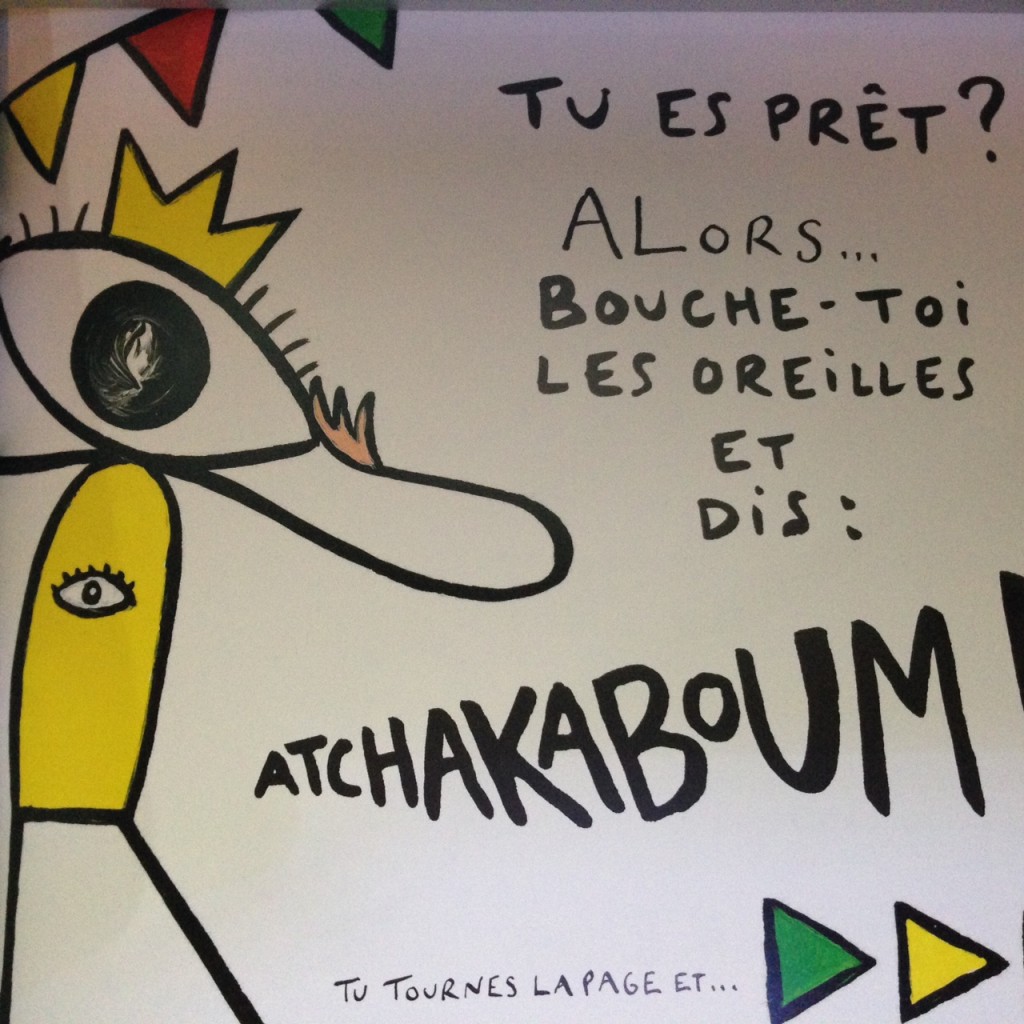 TU ES PRÊT?
ALORS...
BOUCHE-TOi
LES OREiLLES
ET
DiS:
ATCHAKABOUM!
TU TOURNES LA PAGE ET...